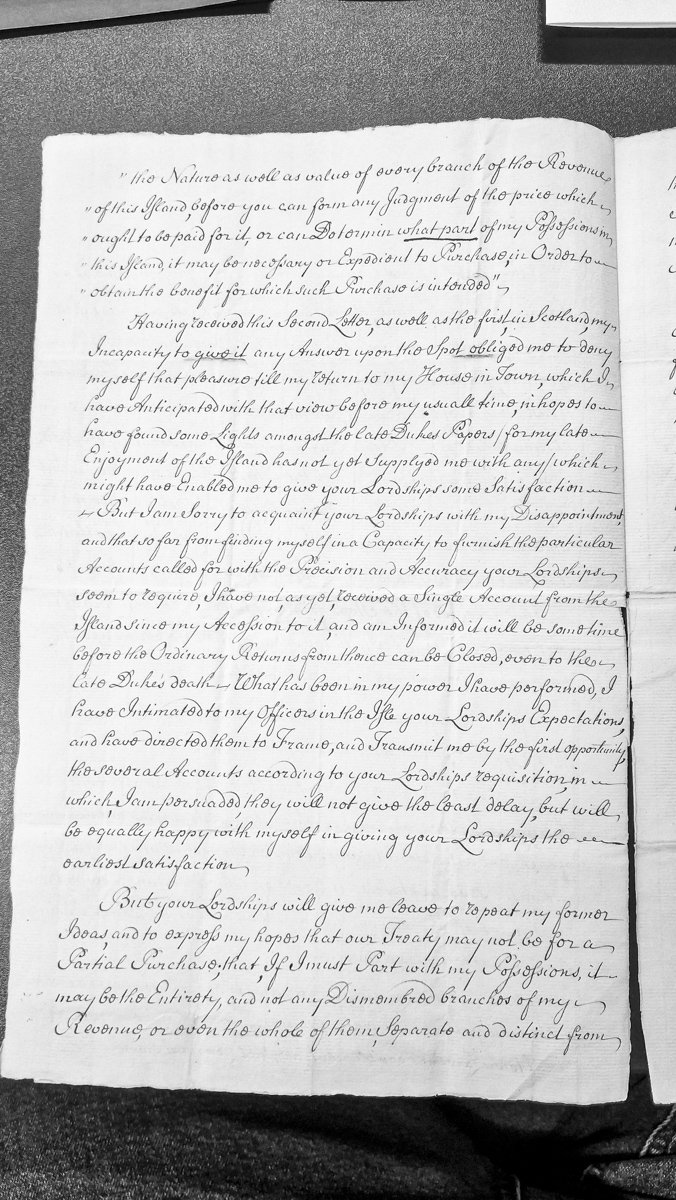 " the Nature as well as value of every branch of the Revenue
" of this Island, before you can form any Judgment of the price which
" ought to be paid for it, or can Determin what part of my Possessions in
" this Island, it may be necessary or Expedient to Purchase, in Order to
" obtain the benefit for which such Purchase is intended"
Having received this Second Letter, as well as the first, in Scotland, my
Incapacity to give it any Answer upon the Spot obliged me to deny
myself that pleasure till my return to my House in Town, which I
have Anticipated with that view before my usuall time, in hopes to
have found some Lights amongst the late Dukes Papers / for my late
Enjoyment of the Island has not yet Supplyed me with any / which
might have Enabled me to give your Lordships some Satisfaction
But I am Sorry to acquaint your Lordships with my Disappointment,
and that so far from finding myself in a Capacity to furnish the particular
Accounts called for with the Precision and Accuracy your Lordships
seem to require, I have not, as yet, received a Single Account from the
Island since my Accession to it, and am Informed it will be some time
before the Ordinary Returns from thence can be Closed, even to the
late Duke's death What has been in my power I have performed, I
have Intimated to my Officers in the Isle your Lordships Expectations,
and have directed them to Frame, and Transmit me by the first opportunity,
the several Accounts according to your Lordships requisition, in
which, I am persuaded, they will not give the least delay, but will
be equally happy with myself in giving your Lordships the
earliest satisfaction
But your Lordships will give me leave to repeat my former
Ideas, and to express my hopes that our Treaty may not be for a
Partial Purchase; that, If I must Part with my Possessions, it
may be the Entirety, and not any Dismembred branches of my
Revenue, or even the whole of them, Separate and distinct from